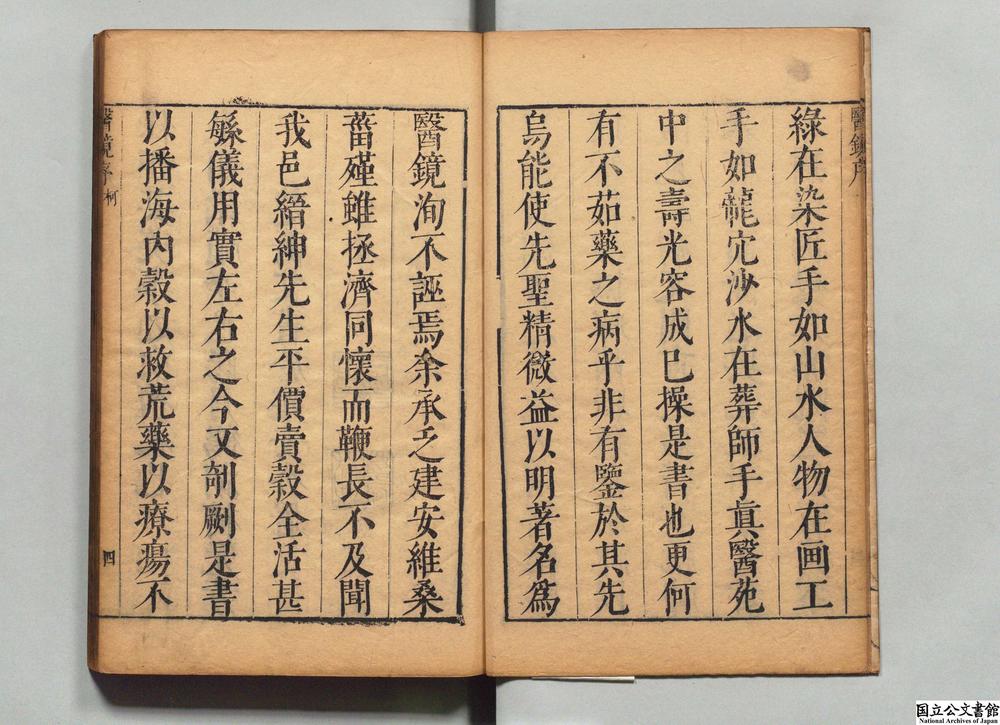 綠在染匠手如山水人物在画工
手如龍穴沙水在葬師手真醫苑
中之壽光容成已操是書也更何
有不茹藥之病乎非有鑒於其先
烏能使先聖精微益以明著名爲
醫鏡洵不誣焉余承乏建安維桑
菑殣雖拯濟同懷而鞭長不及聞
我邑縉紳先生平價賣穀全活甚
緐儀用實左右之今又剞劂是書
以播海内穀以救荒藥以療瘍不
醫鏡序
四
国立公文書館
National Archives of Japan